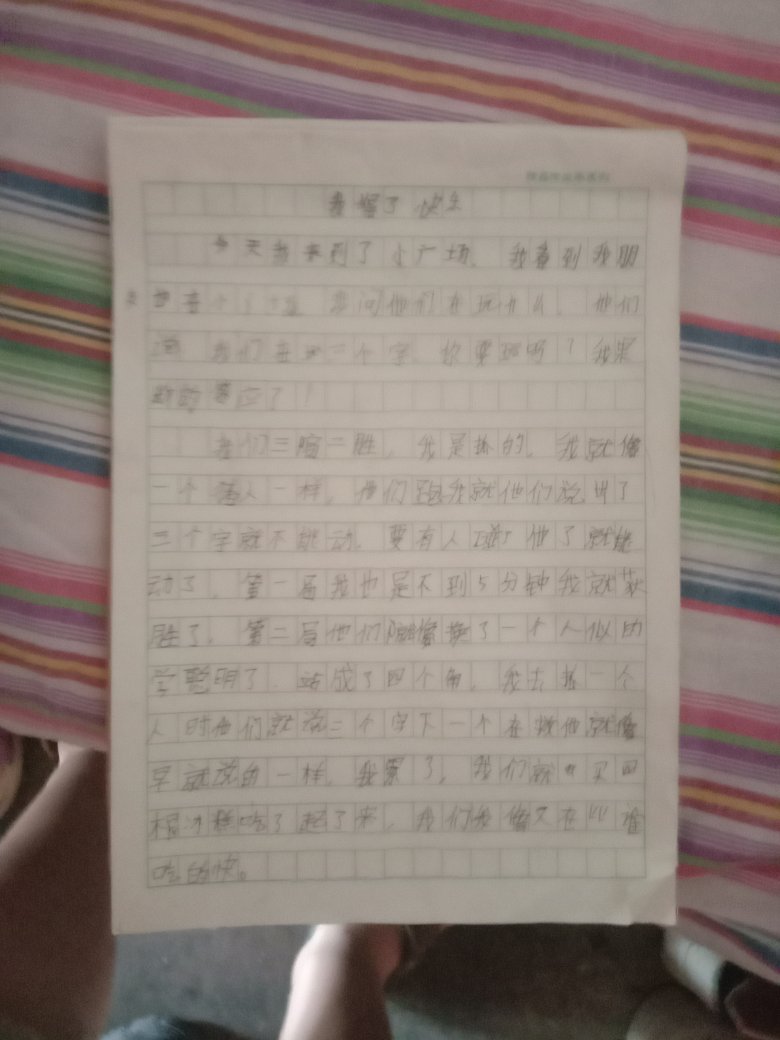 我 了 快乐
今天我来到了小广场，我看到我朋
友也在 ，我问他们在玩什么，他们
我们在玩三个字，你要玩吗？我果
断的答应了！
我们三 二胜，我是抓的，我就像
一个 人一样，他们跑我就他们说出了
三个字就不能动，要有人碰了他了就能
动了，第一局我也是不到5分钟我就获
胜了，第二局他们 像 了一个人似的
学聪明了，站成了四个角，我去抓一个
人时他们就说三个字下一个在 他就像
字就说的一样，我累了，我们就 买四
根冰糕吃了起了来，我们我像又在 谁
吃的快。